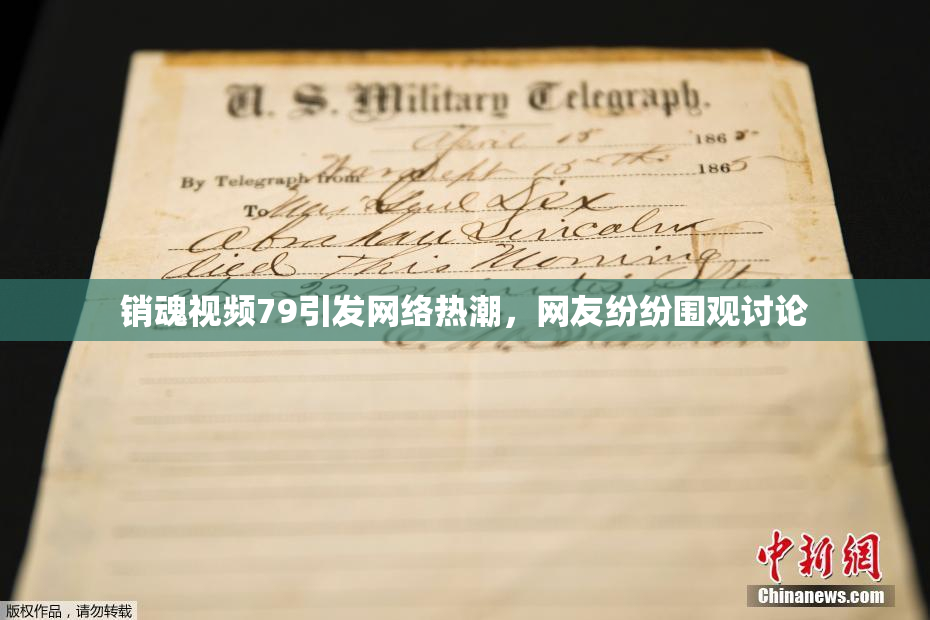 U. S. Military Telegraph.
April 15 1865
By Telegraph from War Dept 15th 1865
To Maj Genl Dix
Abraham Lincoln
died This Morning
at 22 minutes after
销魂视频79引发网络热潮，网友纷纷围观讨论
E. M. Stanton
中新网
Chinanews.com
版权作品，请勿转载